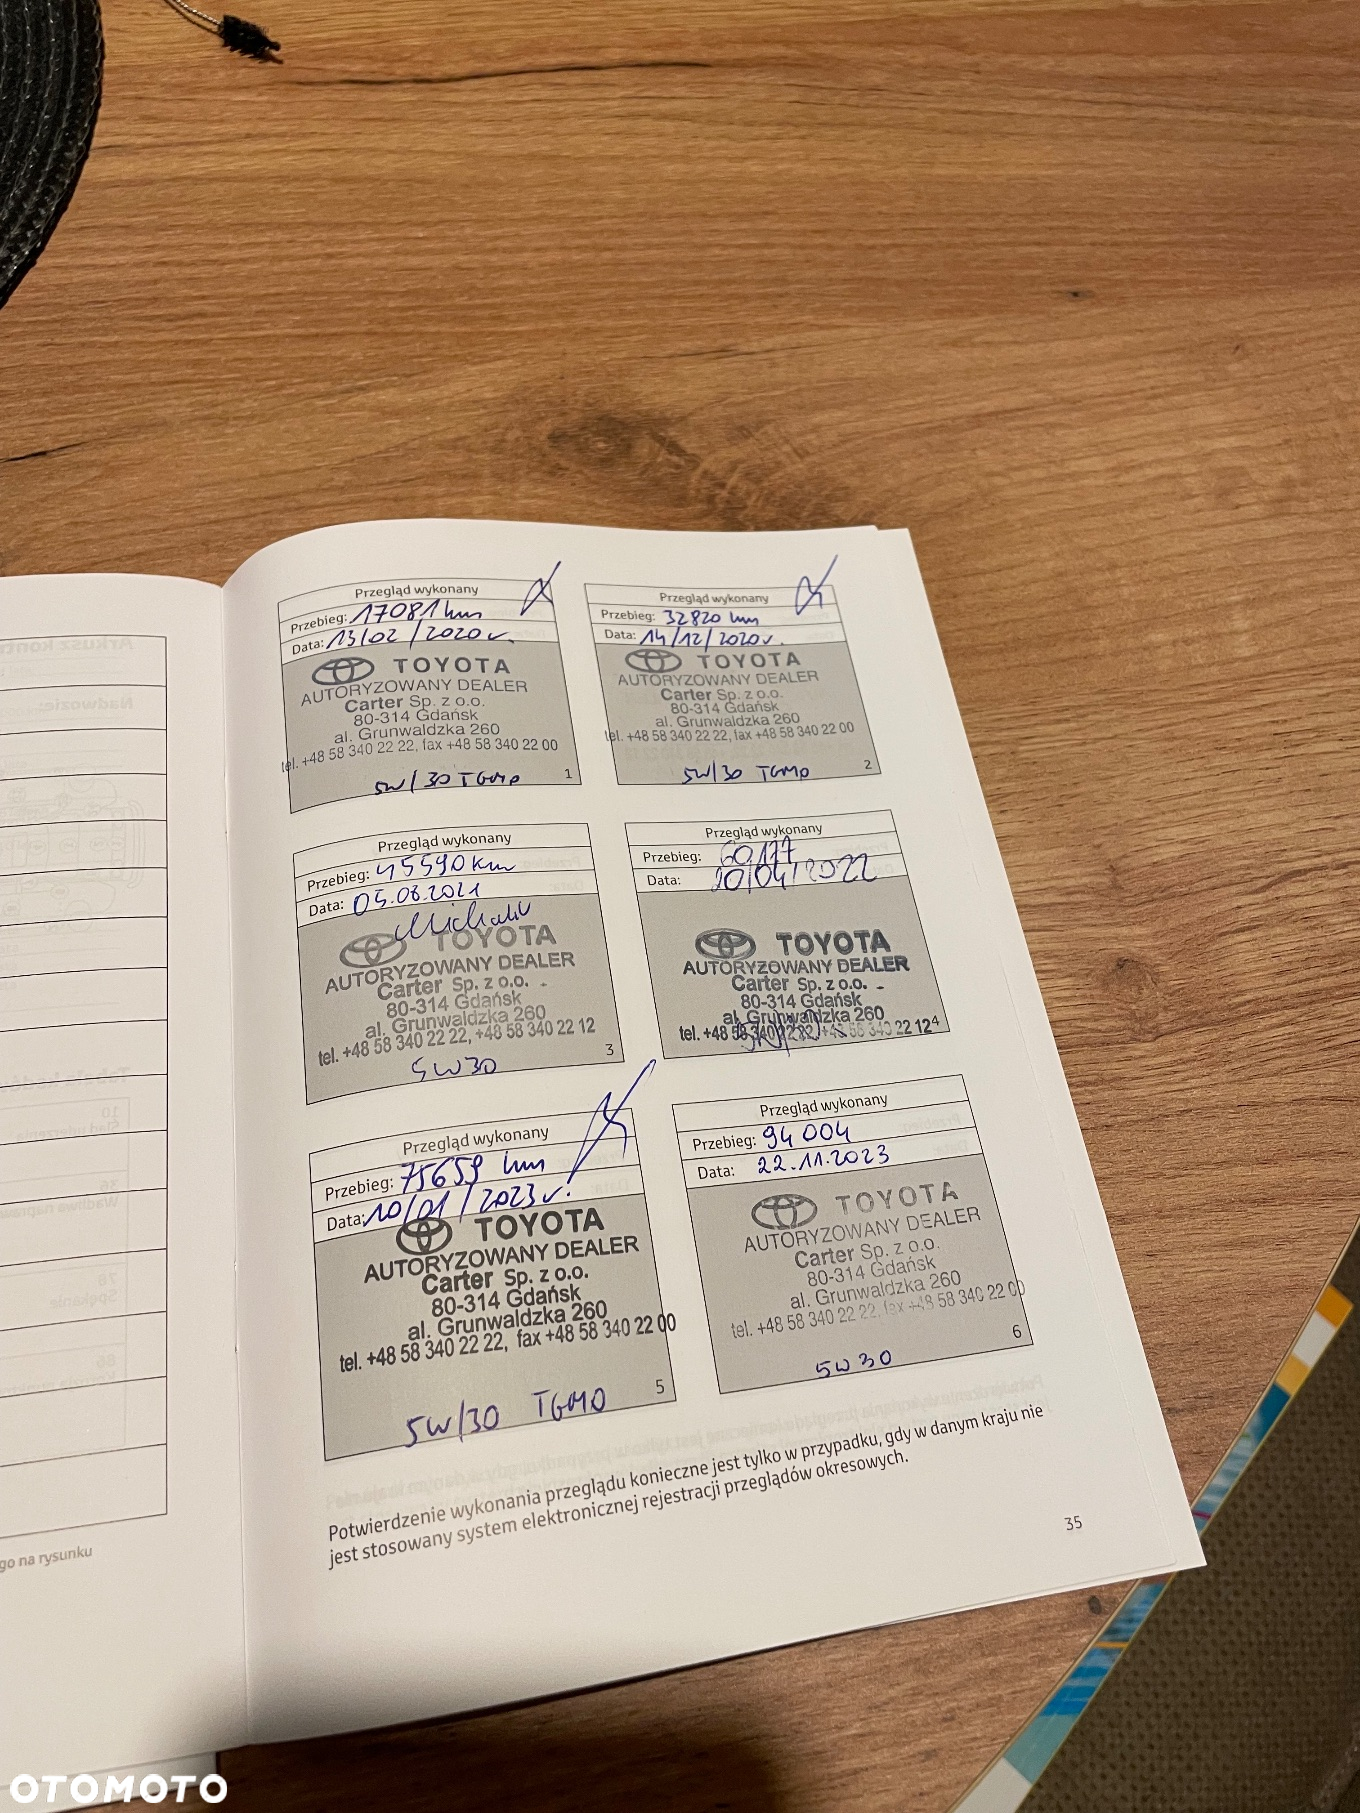 Przegląd wykonany
Przebieg: 17081 km
Data: 13/02/2020 r.
TOYOTA
AUTORYZOWANY DEALER
Carter Sp. z o.o.
80-314 Gdańsk
al. Grunwaldzka 260
tel. +48 58 340 22 22, fax +48 58 340 22 00
5W/30 TGMO
1
Przegląd wykonany
Przebieg: 32820 km
Data: 14/12/2020 r.
TOYOTA
AUTORYZOWANY DEALER
Carter Sp. z o.o.
80-314 Gdańsk
al. Grunwaldzka 260
tel. +48 58 340 22 22, fax +48 58 340 22 00
5W/30 TGMO
2
Przegląd wykonany
Przebieg: 45590 km
Data: 05.08.2021
TOYOTA
AUTORYZOWANY DEALER
Carter Sp. z o.o.
80-314 Gdańsk
al. Grunwaldzka 260
tel. +48 58 340 22 22, +48 58 340 22 12
5W30
3
Przegląd wykonany
Przebieg: 60177
Data: 20/04/2022
TOYOTA
AUTORYZOWANY DEALER
Carter Sp. z o.o.
80-314 Gdańsk
al. Grunwaldzka 260
tel. +48 58 340 22 22, +48 58 340 22 12
4
Przegląd wykonany
Przebieg: 75659 km
Data: 10/01/2023 r.
TOYOTA
AUTORYZOWANY DEALER
Carter Sp. z o.o.
80-314 Gdańsk
al. Grunwaldzka 260
tel. +48 58 340 22 22, fax +48 58 340 22 00
5W/30 TGMO
5
Przegląd wykonany
Przebieg: 94 004
Data: 22.11.2023
TOYOTA
AUTORYZOWANY DEALER
Carter Sp. z o.o.
80-314 Gdańsk
al. Grunwaldzka 260
tel. +48 58 340 22 22, fax +48 58 340 22 00
5W30
6
Potwierdzenie wykonania przeglądu konieczne jest tylko w przypadku, gdy w danym kraju nie
jest stosowany system elektronicznej rejestracji przeglądów okresowych.
35
go na rysunku
OTOMOTO